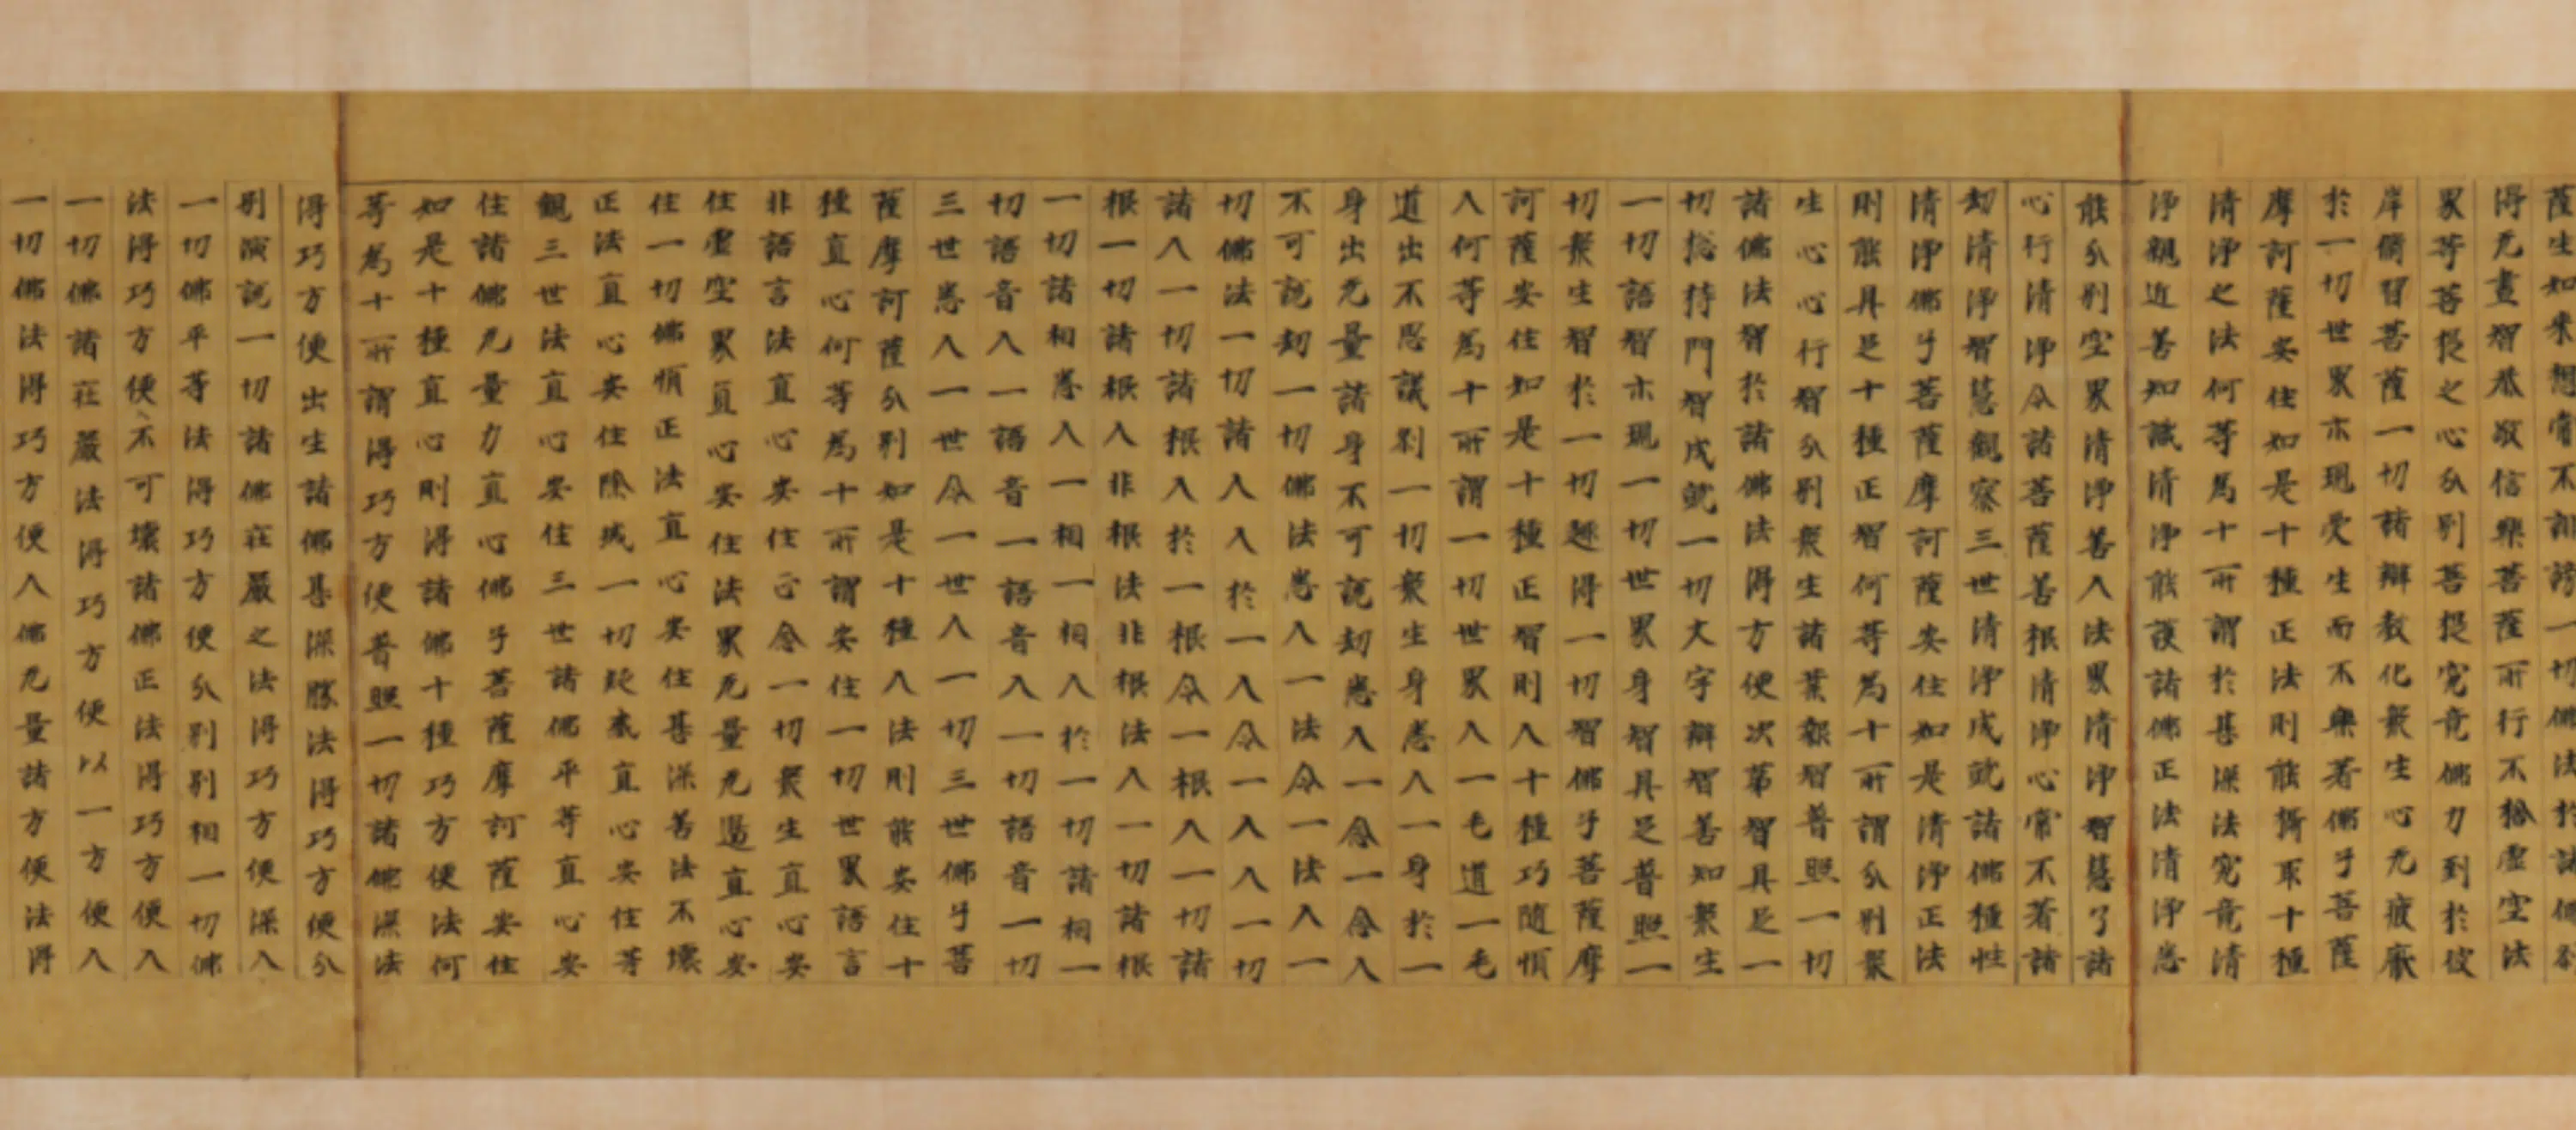 薩生如来想常不誹謗一切佛法於諸佛刹
得无盡智恭敬信樂菩薩所行不捨虛空法
界等菩提之心分別菩提究竟佛力到於彼
岸俻習菩薩一切諸辯教化衆生心无疲厭
於一切世界示現受生而不樂著佛子菩薩
摩訶薩安住如是十種正法則能攝取十種
清淨之法何等為十所謂於甚深法究竟清
淨親近善知識清淨能護諸佛正法清淨悉
能分別空界清淨善入法界清淨智慧了諸
心行清淨令諸菩薩善根清淨心常不著諸
劫清淨智慧觀察三世清淨成就諸佛種性
清淨佛子菩薩摩訶薩安住如是清淨正法
則能具足十種正智何等為十所謂分別衆
生心心行智分別衆生諸業報智普照一切
諸佛法智於諸佛法得方便次第智具足一
切捴持門智成就一切文字辯智善知衆生
一切語智示現一切世界身智具足普照一
切衆生智於一切趣得一切智佛子菩薩摩
訶薩安住如是十種正智則入十種巧隨順
入何等為十所謂一切世界入一毛道一毛
道出不思議刹一切衆生身悉入一身於一
身出无量諸身不可說劫悉入一念一念入
不可說劫一切佛法悉入一法令一法入一
切佛法一切諸入入於一入令一入入一切
諸入一切諸根入於一根令一根入一切諸
根一切諸根入非根法非根法入一切諸根
一切諸相悉入一相一相入於一切諸相一
切語音入一語音一語音入一切語音一切
三世悉入一世令一世入一切三世佛子菩
薩摩訶薩分別如是十種入法則能安住十
種直心何等為十所謂安住一切世界語言
非語言法直心安住正念一切衆生直心安
住虛空界直心安住法界无量无邊直心安
住一切佛順正法直心安住甚深善法不壞
正法直心安住除滅一切疑惑直心安住等
觀三世法直心安住三世諸佛平等直心安
住諸佛无量力直心佛子菩薩摩訶薩安住
如是十種直心則得諸佛十種巧方便法何
等為十所謂得巧方便普照一切諸佛深法
得巧方便出生諸佛甚深勝法得巧方便分
別演說一切諸佛莊嚴之法得巧方便深入
一切佛平等法得巧方便分別別相一切佛
法得巧方便不可壞諸佛正法得巧方便入
一切佛諸莊嚴法得巧方便以一方便入
一切佛法得巧方便入佛无量諸方便法得